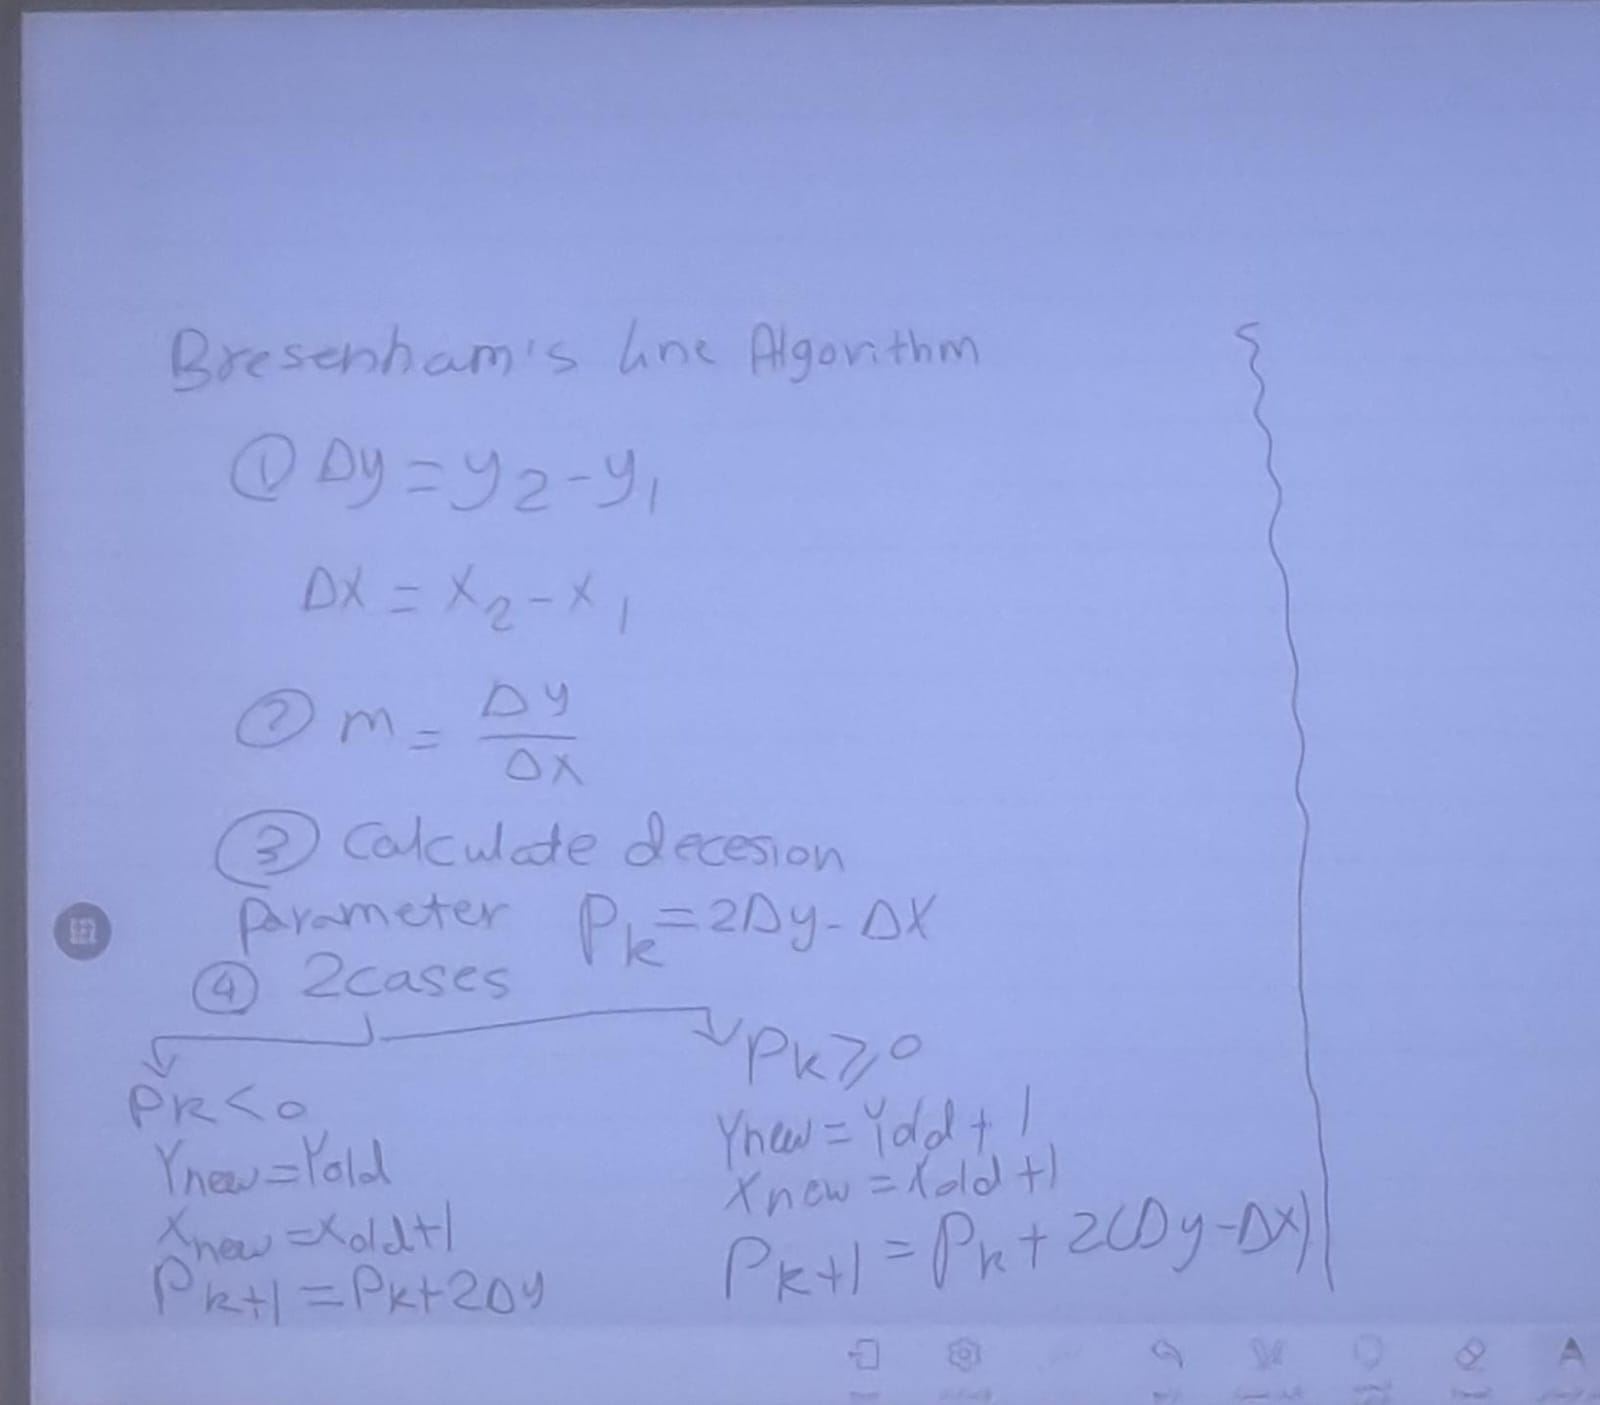 Bresenham's line Algorithm
① Δy = y2 - y1
Δx = x2 - x1
② m = Δy/Δx
③ Calculate decesion
Parameter Pk = 2Δy - Δx
④ 2cases
Pk < 0
Ynew = Yold
Xnew = Xold+1
Pk+1 = Pk+2Δy
Pk ⩾ 0
Ynew = Yold + 1
Xnew = Xold +1
Pk+1 = Pk + 2(Δy-Δx)
A